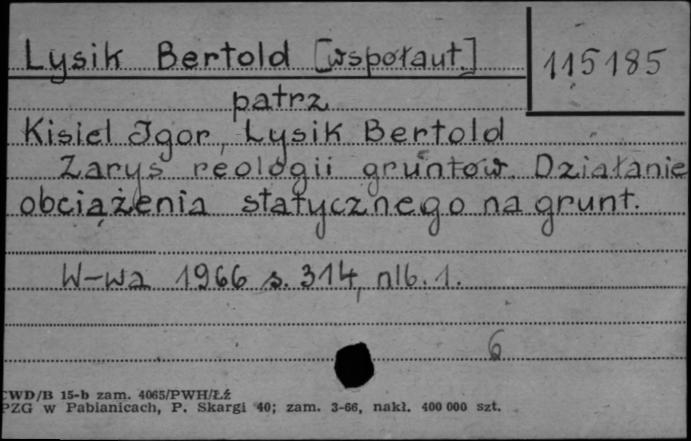 Lysik Bertold [współaut.]
115185
patrz
Kisiel Igor, Lysik Bertold
Zarys reologii gruntów. Działanie
obciążenia statycznego na grunt.
W-wa 1966 s. 314, nlb. 1.
6
CWD/B 15-b zam. 4065/PWH/Łź
PZG w Pabianicach, P. Skargi 40; zam. 3-66, nakł. 400 000 szt.